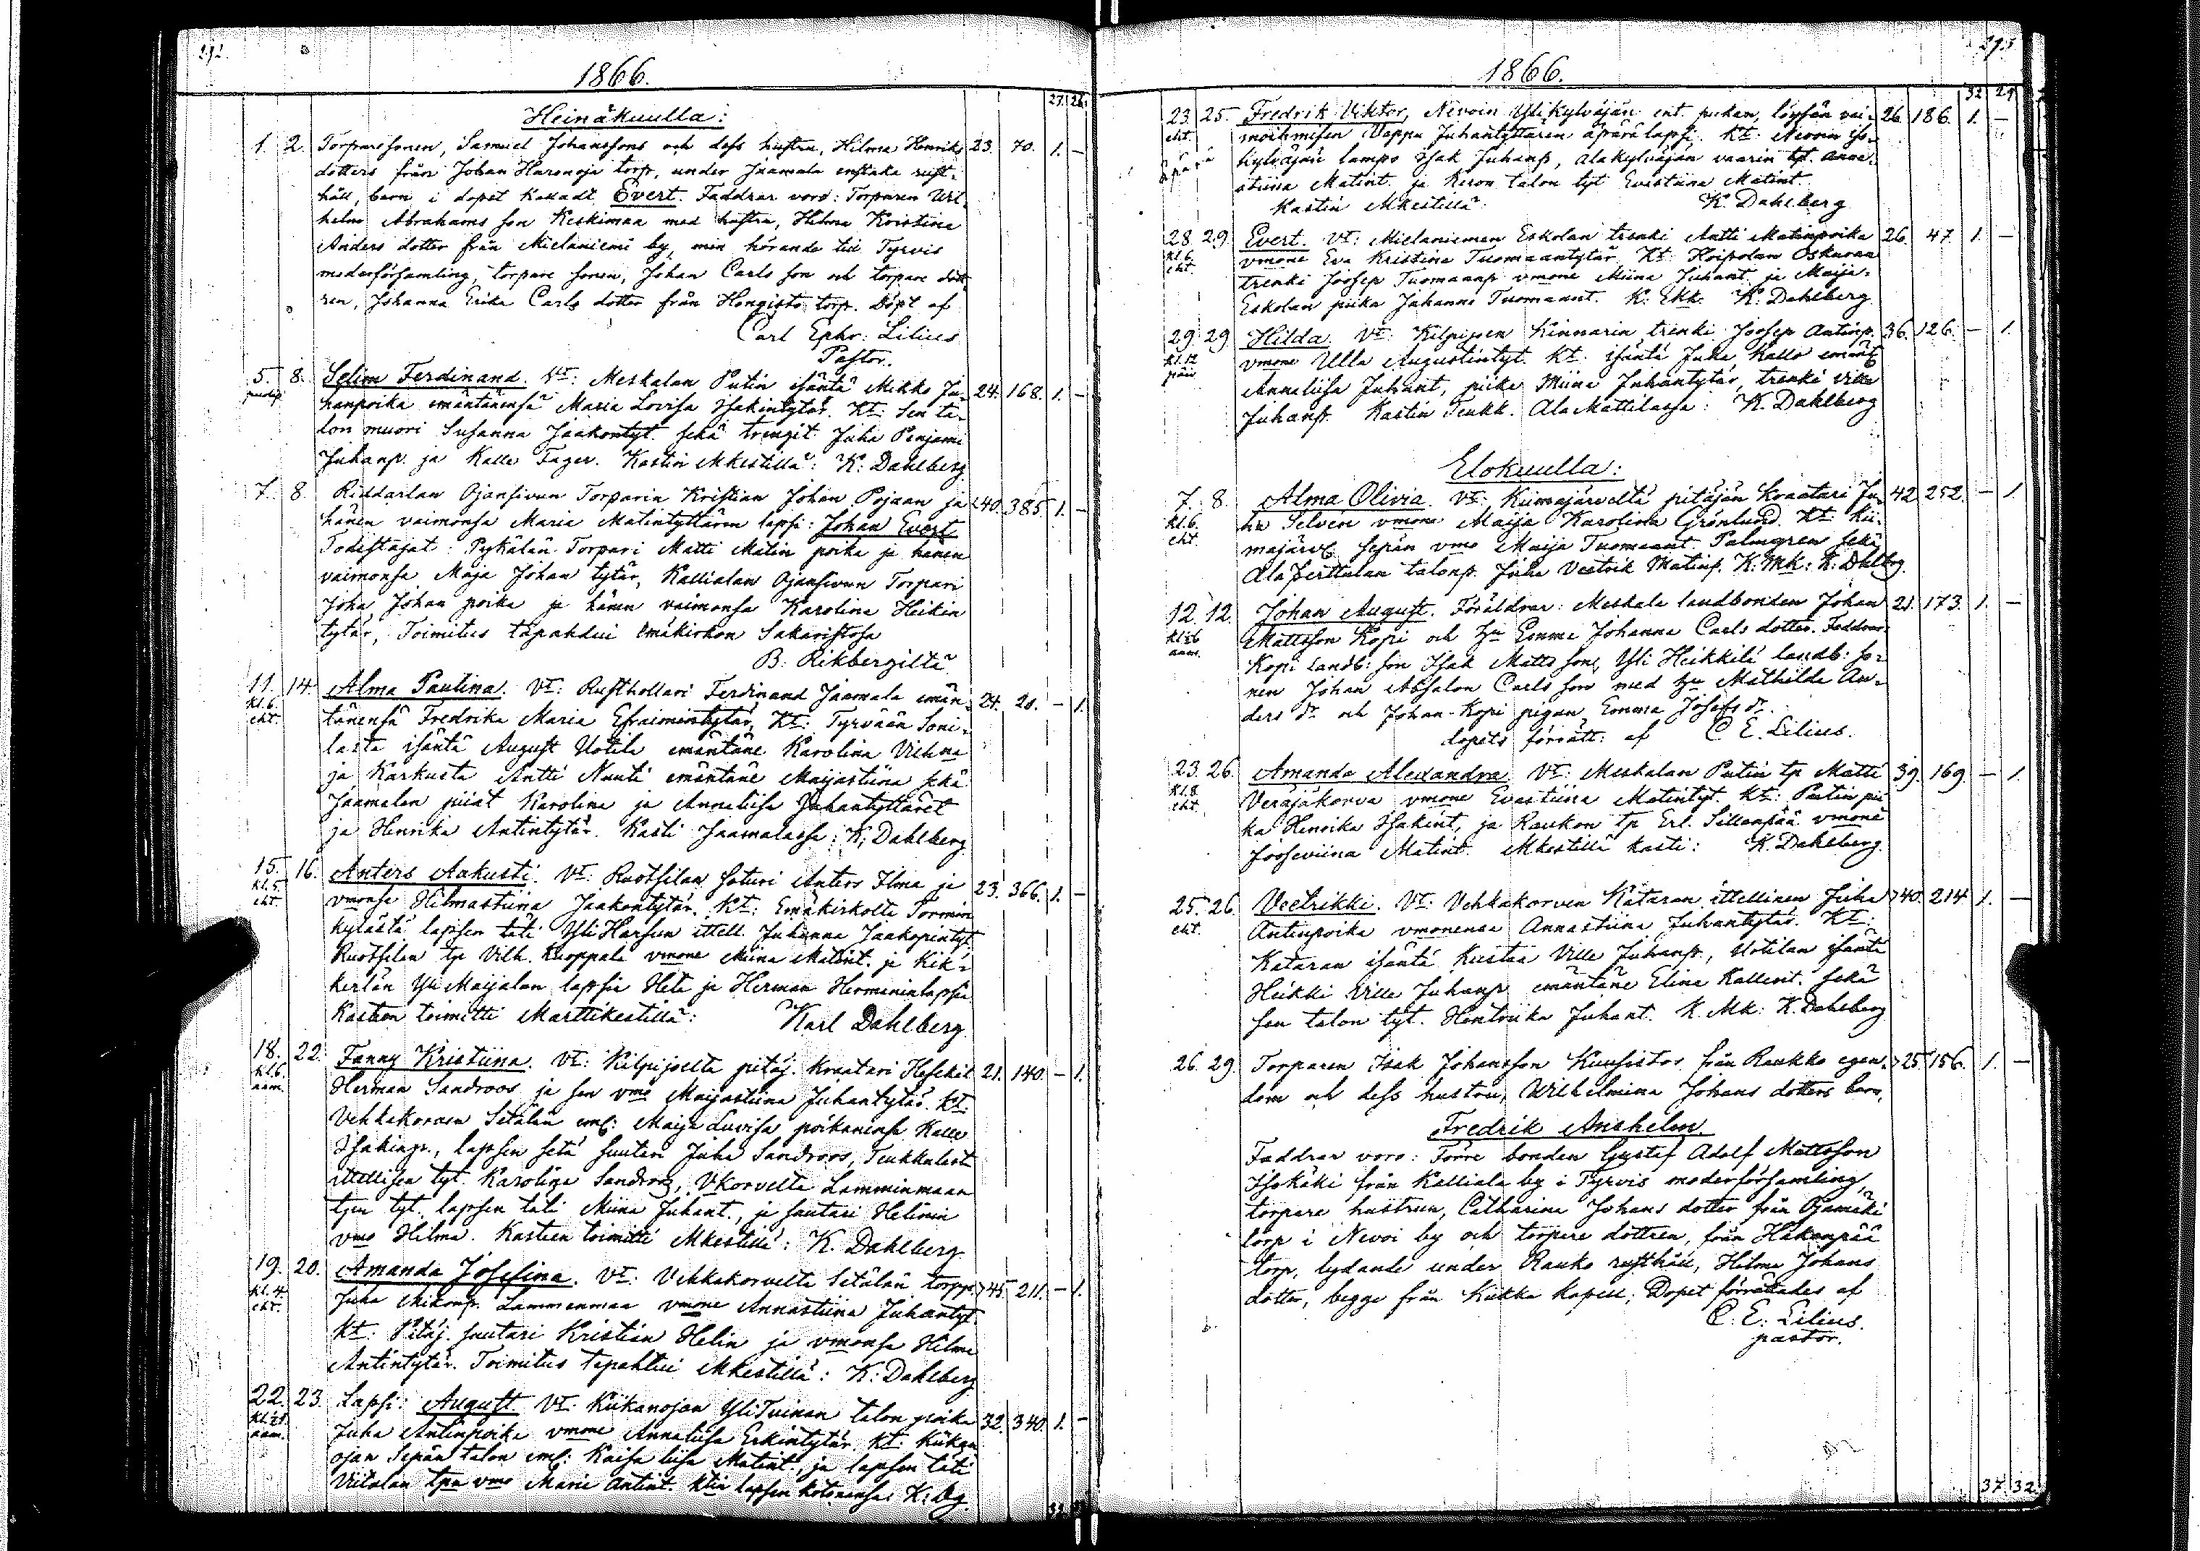 292.
1866.
27. 26.
Heinäkuulla:
1. 2. Torparesonen, Samuel Johanssons och dess hustru, Hilma Henriks 23. 70. 1. —
dotters från Johan Haronoja torp, under Jaamala enstaka rust-
håll, barn i dopet kalladt Evert. Faddrar voro: Torparen Wil-
helm Abrahams son Keskimaa med hustru, Hilma Kristina
Anders dotter från Mielaniemi by, min hörande till Tyrvis
moderförsamling, torpare sonen, Johan Carls son och torpare dott
ren, Johanna Erika Carls dotter från Hongisto torp. Döpt af
Carl Ephr: Lilius
Pastor.
5. 8. Selim Ferdinand. Vt: Meskalan Putin isäntä Mikko Ju- 24. 168. 1. —
hanpoika emäntänensä Maria Lovisa Isakintytär. Kt: Sen ta-
lon muori Susanna Jaakontyt. sekä trengit Juha Penjami
Juhanp. ja Kalle Fager. Kastin Mkestillä: K. Dahlberg
7. 8. Riddarlan Ojansivun Torparin Kristian Johan Pojaan ja 40. 385. 1. —
hänen vaimonsa Maria Matintyttären lapsi: Johan Evert
Todistajat: Pykälän Torpari Matti Matin poika ja hänen
vaimonsa Maja Johan tytär, Kallialan Ojansivun Torpari
Joha Johan poika ja hänen vaimonsa Karolina Heikin
tytär, Toimitus tapahdui Emäkirkon Sakaristosa
B: Rikbergiltä
11. 14. Alma Paulina. Vt: Rusthollari Ferdinand Jaamala emän- 24. 20. — 1.
kl.6. tänensä Fredrika Maria Efraimintytär, Kt: Tyrvään Soni-
eht. lasta isäntä August Uotila emäntäne Karolina Vilhna
ja Karkusta Antti Nuuti emäntäne Maijastiina sekä
Jaamalan piiat Karolina ja Annaliisa Juhantyttäret
ja Henrika Antintytär. Kasti Jaamalassa: K. Dahlberg
15. 16. Anters Aakusti. Vt: Ruotsilan soturi Anters Ilma ja 23. 366. 1. —
kl.5. vmonsa Hilmastiina Jaakontytär. Kt: Emäkirkolta Tormin
eht. kylästä lapsen täti Yli Harsun ittell. Juhanna Jaakopintyt.
Ruotsilan tp Vilh. Kuoppala vmone Miina Matint. ja Kik-
kerlän Yli Maijalan lapsia Heta ja Herman Hermaninlapsia
Kasteen toimitti Marttikestillä: Karl Dahlberg
18. 22. Fanny Kristiina. Vt: Kilpijoelta pitäj. kraatari Hesekiel 21. 140. — 1.
kl.6. Herman Sandroos ja sen vmo Maijastiina Juhantytär. Kt:
aam. Vehkakorven Setälän emf: Maija Luvisa poikanensa Kalle
Isakinp., lapsen setä suutari Juha Sandroos, Teukkulasta
ittellisen tyt. Karolina Sandroos, Vkorvelta Lamminmaan
tpn tyt. lapsen täti Miina Juhant., ja suutari Helinin
vmo Hilma. Kasteen toimitti Mkestillä: K. Dahlberg
19. 20. Amanda Josefina. Vt: Vehkakorvelta Setälän torpp. 45. 211. — 1.
kl.4. Juha Mikonp. Lammenmaa vmone Annastiina Juhantyt.
eht. Kt: Pitäj. suutari Kristian Helin ja vmonsa Hilma
Antintytär. Toimitus tapahtui Mkestillä: K. Dahlberg
22. 23. Lapsi: August. Vt: Kiikanojan Yli Tuinan talon poika 32. 340. 1. —
aam. Juha Antinpoika vmone Annaliisa Erkintytär. Kt: Kiikan
ojan Sepän talon emf: Kaisa liisa Matint., ja lapsen täti
Viitalan tpn vmo Maria Antint. Ktin lapsen kotonansa: K. Dbg.
293
1866.
32 29
23. 25. Fredrik Viktor, Nevoin Ylikylväjän ent. piikan, löysän vai- 26. 186. 1. —
eht. moihmisen Vappu Juhantyttären äpärä lapsi. Kt: Nevoin Yli-
äpärä kylväjän lampo Isak Juhanp, Alakylväjän vaarin tyt. Anna-
stiina Matint. ja Keson talon tyt Evastiina Matint.
Kastin Mkestillä: K. Dahlberg
28. 29. Evert. Vt: Mielanieman Eskolan trenki Antti Matinpoika 26. 47. 1. —
kl.6. vmone Eva Kristina Tuomaantytär. Kt: Hoipolan Oskuraa
eht. trenki Joosep Tuomaanp vmone Miina Juhant. ja Maija-
Eskolan piika Juhanna Tuomaant. K. Ekk. K. Dahlberg
29. 29. Hilda. Vt: Kilpijoen Kinnarin trenki Joosep Antinp. 36. 126. — 1.
kl.12 vmone Ulla Augustintyt. Kt: isäntä Juha Kallo emänt
päiv Annaliisa Juhant, piika Miina Juhantytär, trenki Ville
Juhanp. Kastin Teukk. Ala Mattilassa: K. Dahlberg
Elokuulla:
7. 8. Alma Olivia. Vt: Kiimajärveltä pitäjän kraatari Ju- 42. 252. — 1.
kl.6. ha Selven vmone Maija Karoliina Grönlund. Kt: Kii-
eht. majärv. sepän vmo Maija Tuomaant. Palmgren sekä
Ala Perttulan talonp. Juha Vestrik Matinp. K. Mk: K. Dahlbg.
12. 12. Johan August. Föräldrar: Meskala landbonden Johan 21. 173. 1. —
aam. Mattsson Kopi och hu Emma Johanna Carls dotter. Faddrar:
Kopi landb: son Isak Matts son, Yli Heikkilä landb: so-
nen Johan Absalon Carls son med hu Mathilda An-
ders dr och Johan-Kopi pigan, Emma Josefs dr.
dopets förrätt: af C. E. Lilius.
23. 26. Amanda Alexandra. Vt: Meskalan Putin tp Matti 39. 169. — 1.
kl.8. Veräjäkorva vmone Evastiina Matintyt. Kt: Putin pii
eht. ka Henrika Isakint, ja Raukon tp Erl. Sillanpää vmone
Jooseviina Matint. Mkestillä kasti: K. Dahlberg.
25. 26. Veetrikki. Vt: Vehkakorven Kätaran ittellinen Juha 40. 214 1. —
eht. Antinpoika vmonensa Annastiina Juhantytär. Kt:
Kataran isäntä Kustaa Ville Juhanp., Uotilan isäntä
Heikki Ville Juhanp emäntäne Elina Kallent. sekä
sen talon tyt. Hentriika Juhant. K. Mk: K. Dahlberg
26. 29. Torparen Isak Johansson Kuusistos från Raukko egen- 25. 156. 1. —
dom och dess hustru, Wilhelmina Johans dotters barn,
Fredrik Anshelm.
Faddrar voro: Torre bonden Gustaf Adolf Mattsson
Isokäki från Kalliala by i Tyrvis moderförsamling,
torpare hustrun, Catharina Johans dotter från Ojamäki
torp i Nevoi by och torpare dottren, från Hakanpää
torp, lydande under Rauko rusthåll, Hilma Johans
dotter, begge från Kiikka kapell; Dopet förrättades af
C: E: Lilius.
pastor.
37 32